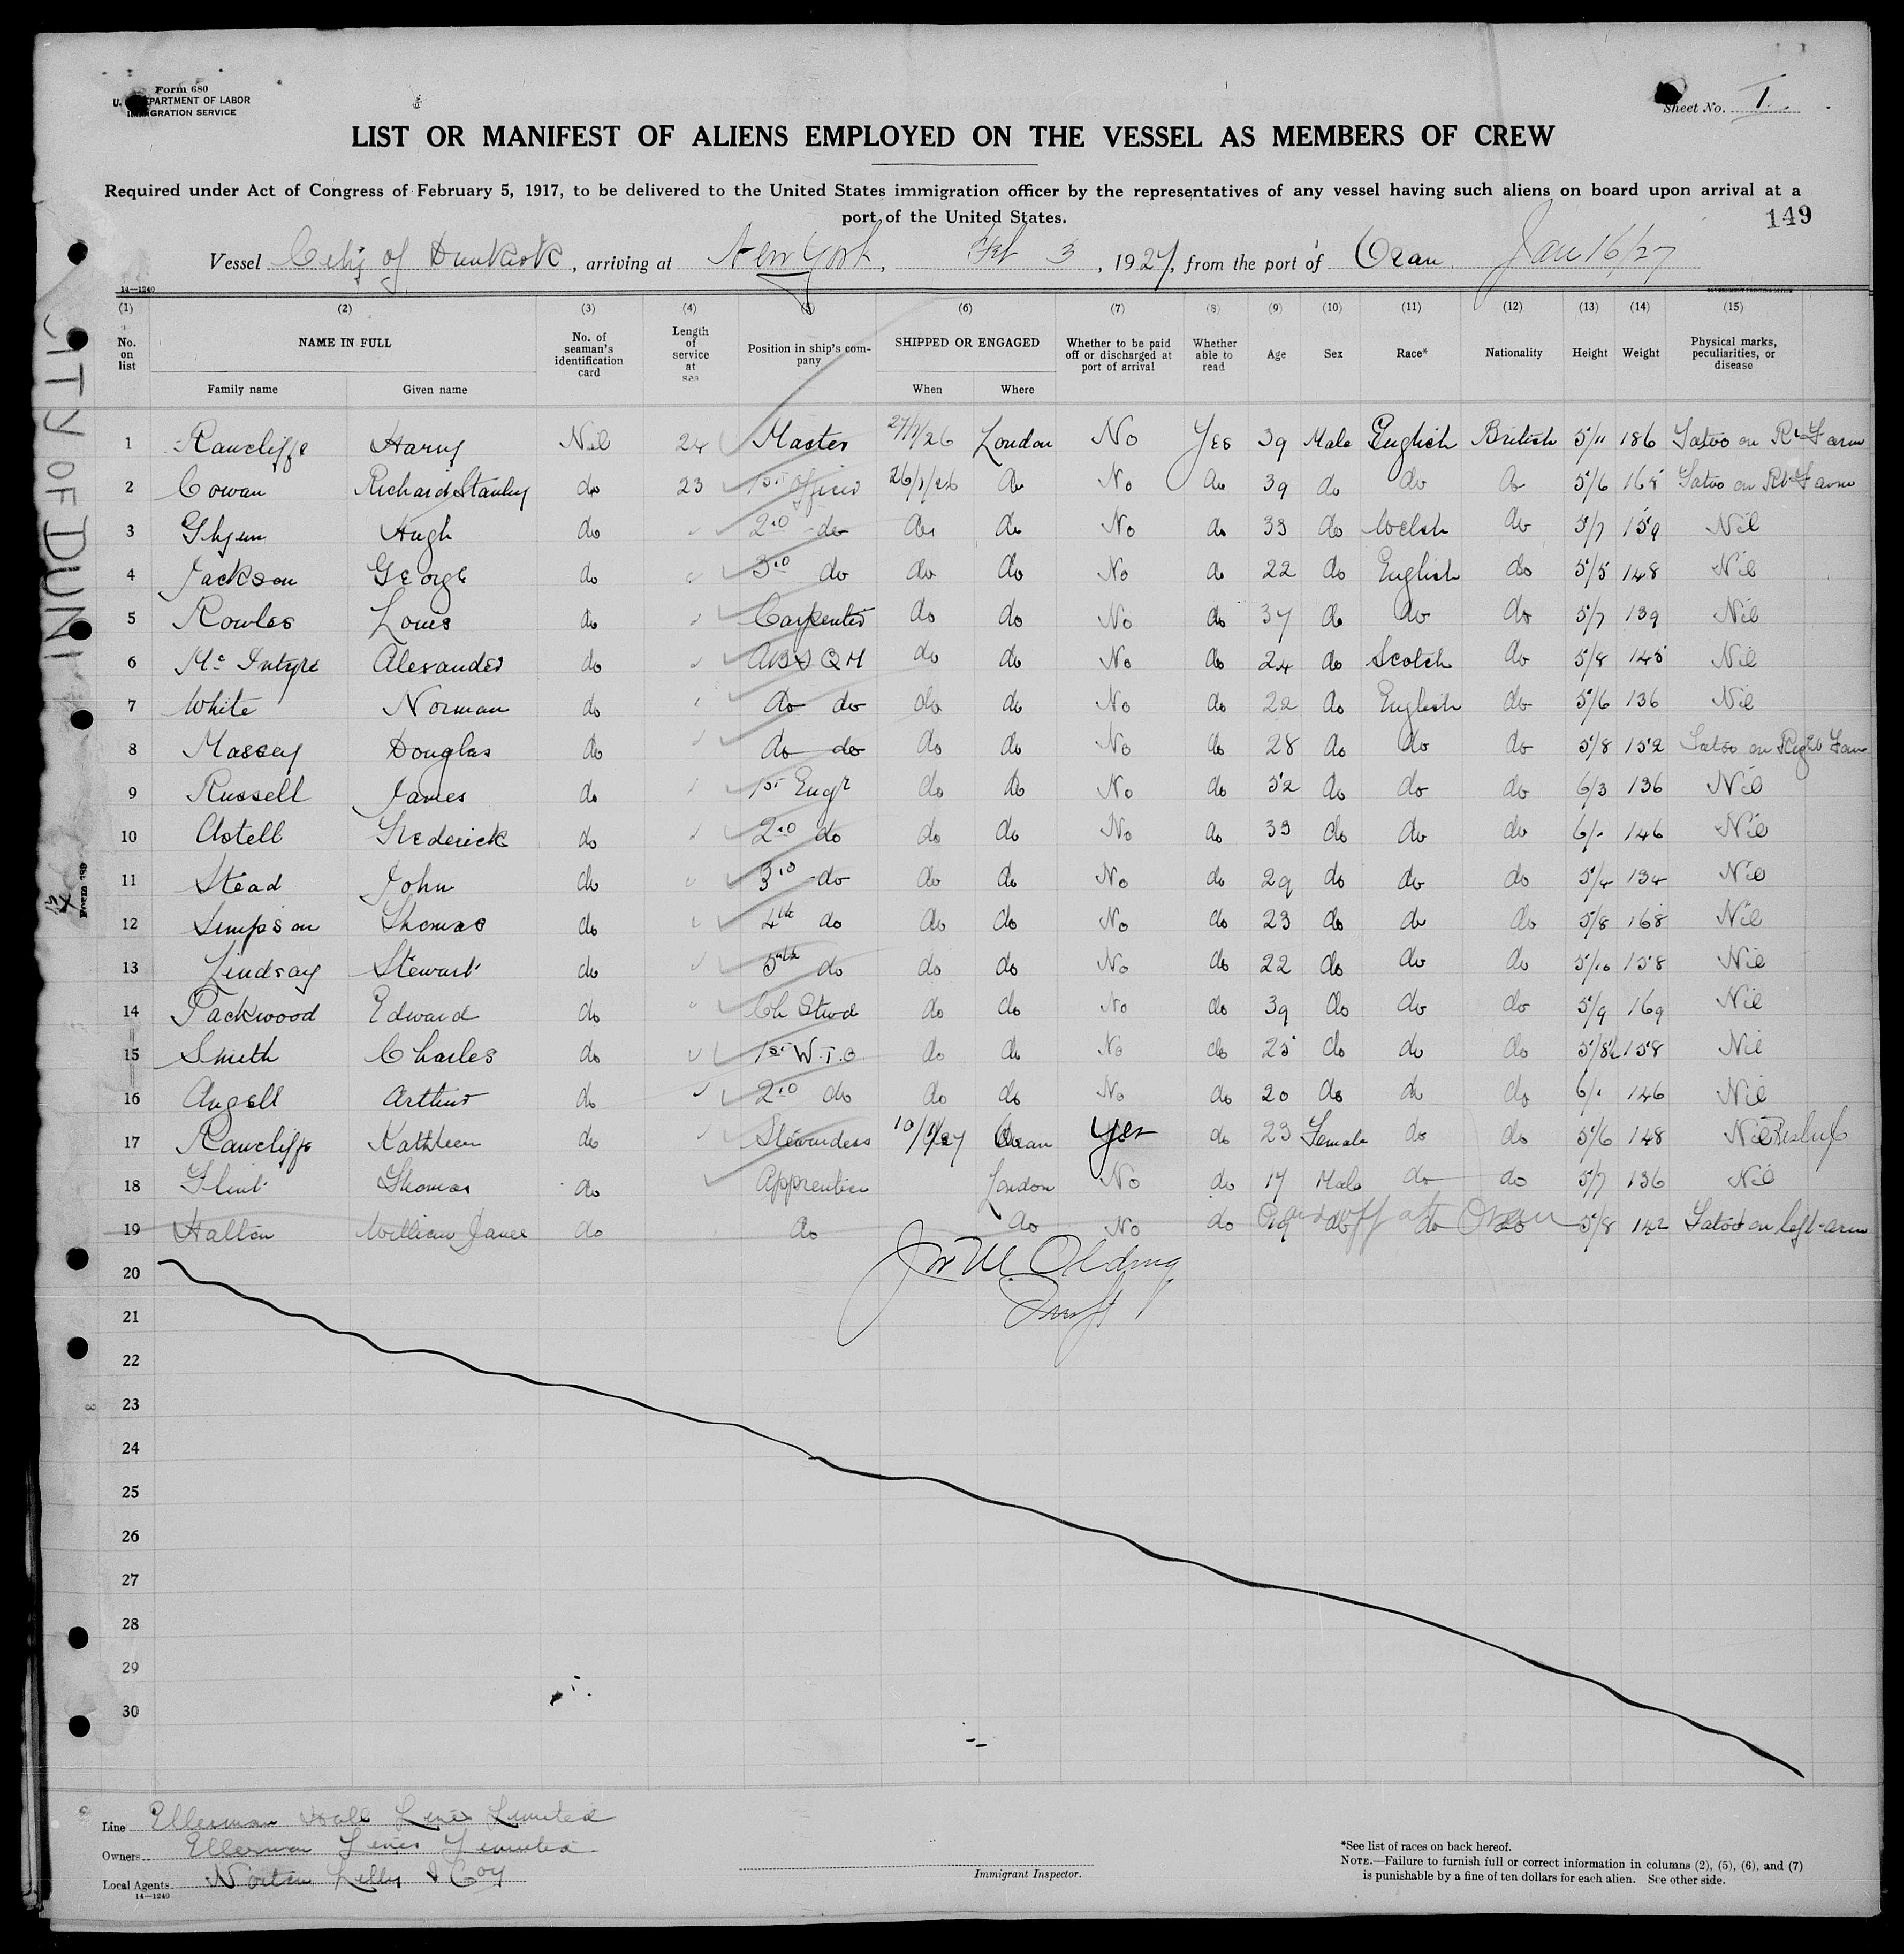 Form 680
U. S. DEPARTMENT OF LABOR
IMMIGRATION SERVICE
Sheet No. 1
LIST OR MANIFEST OF ALIENS EMPLOYED ON THE VESSEL AS MEMBERS OF CREW
Required under Act of Congress of February 5, 1917, to be delivered to the United States immigration officer by the representatives of any vessel having such aliens on board upon arrival at a
port of the United States.
149
Vessel City of Dunkirk, arriving at New York, Feb 3, 1927, from the port of Oran, Jan 16/27
14—1240
(1) (2) (3) (4) (5) (6) (7) (8) (9) (10) (11) (12) (13) (14) (15)
No. on list NAME IN FULL Family name Given name No. of seaman's identification card Length of service at sea Position in ship's company SHIPPED OR ENGAGED When Where Whether to be paid off or discharged at port of arrival Whether able to read Age Sex Race* Nationality Height Weight Physical marks, peculiarities, or disease
1 Rawcliffe Harry Nil 24 Master 27/1/26 London No Yes 39 Male English British 5/11 186 Tatoo on Rt F arm
2 Cowan Richard Stanley do 23 1st Officer 26/1/26 do No do 39 do do do 5/6 168 Tatoo on Rt F arm
3 Hugh do 2nd do do do No do 33 do Welsh do 5/7 159 Nil
4 Jackson George do 3rd do do do No do 22 do English do 5/5 148 Nil
5 Rowles Louis do Carpenter do do No do 37 do do do 5/7 139 Nil
6 Mc Intyre Alexander do ABS QM do do No do 24 do Scotch do 5/8 145 Nil
7 White Norman do do do do do No do 22 do English do 5/6 136 Nil
8 Massey Douglas do do do do do No do 28 do do do 5/8 152 Tatoo on Right F arm
9 Russell James do 1st Engr do do No do 52 do do do 6/3 136 Nil
10 Astell Frederick do 2nd do do do No do 33 do do do 6/- 146 Nil
11 Stead John do 3rd do do do No do 29 do do do 5/4 134 Nil
12 Simpson Thomas do 4th do do do No do 23 do do do 5/8 168 Nil
13 Lindsay Stewart do 5th do do do No do 22 do do do 5/10 158 Nil
14 Packwood Edward do Ch Stwd do do No do 39 do do do 5/9 169 Nil
15 Smith Charles do 1st W.T.O do do No do 25 do do do 5/8½ 158 Nil
16 Angell Arthur do 2nd do do do No do 20 do do do 6/- 146 Nil
17 Rawcliffe Kathleen do Stewardess 10/1/27 Oran Yes do 23 Female do do 5/6 148 Nil
18 Flint Thomas do Apprentice London No do 17 Male do do 5/7 136 Nil
19 Hallin William James do do do No do 19 do do do 5/8 142 Tatoo on left arm
Paid off at Oran
20
21
22
23
24
25
26
27
28
29
30
CITY OF DUNK
Form 680
Line Ellerman Hall Line Limited
Owners Ellerman Lines Limited
Local Agents Norton Lilly & Coy
14—1240
Immigrant Inspector.
*See list of races on back hereof.
NOTE.—Failure to furnish full or correct information in columns (2), (5), (6), and (7)
is punishable by a fine of ten dollars for each alien. See other side.